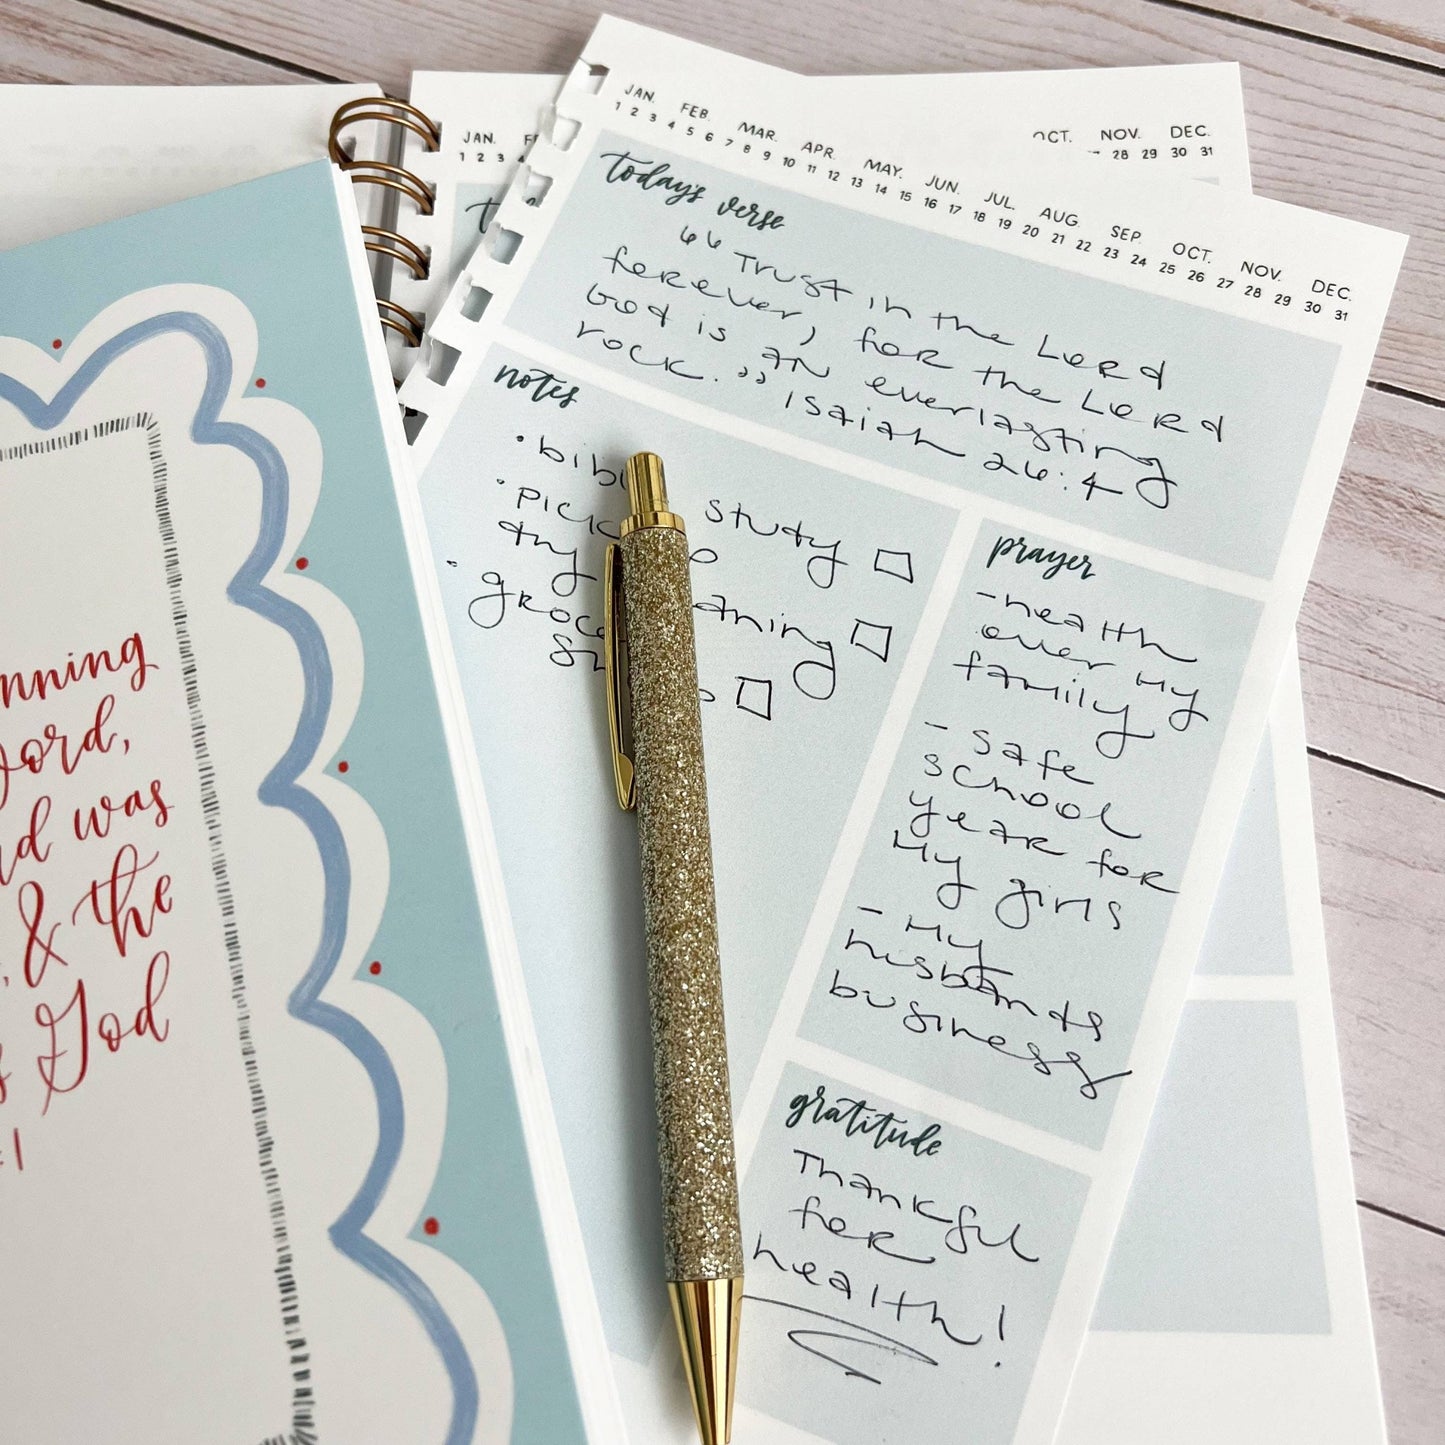 nning
ord,
d was
& the
God
:1
JAN.
1 2 3
OCT. NOV. DEC.
28 29 30 31
JAN. FEB. MAR. APR. MAY. JUN. JUL. AUG. SEP. OCT. NOV. DEC.
1 2 3 4 5 6 7 8 9 10 11 12 13 14 15 16 17 18 19 20 21 22 23 24 25 26 27 28 29 30 31
today's verse
“Trust in the Lord
forever, for the Lord
God is an everlasting
rock.” Isaiah 26:4
notes
• bib study
• pick
dry aning
• groc
prayer
- health
over my
family
- safe
school
year for
my girls
- my
husbands
business
gratitude
Thankful
for
health!